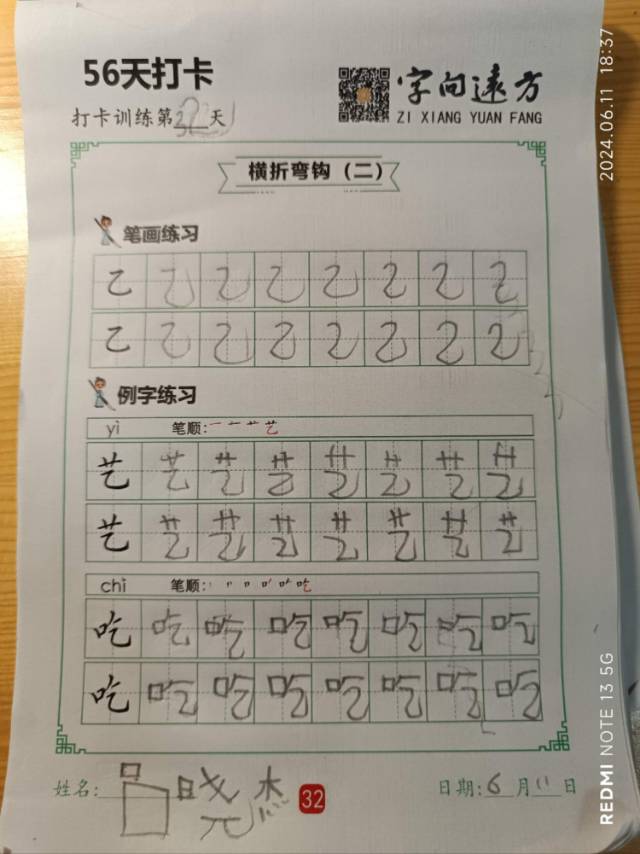 56天打卡
打卡训练第32天
字向远方
ZI XIANG YUAN FANG
横折弯钩（二）
笔画练习
乙 乙 乙 乙 乙 乙 乙 乙
乙 乙 乙 乙 乙 乙 乙 乙
例字练习
yì 笔顺: 一 艹 艺
艺 艺 艺 艺 艺 艺 艺 艺
艺 艺 艺 艺 艺 艺 艺 艺
chī 笔顺: 吃
吃 吃 吃 吃 吃 吃 吃 吃
吃 吃 吃 吃 吃 吃 吃 吃
姓名: 晓杰
32
日期: 6月11日
2024.06.11 18:37
REDMI NOTE 13 5G